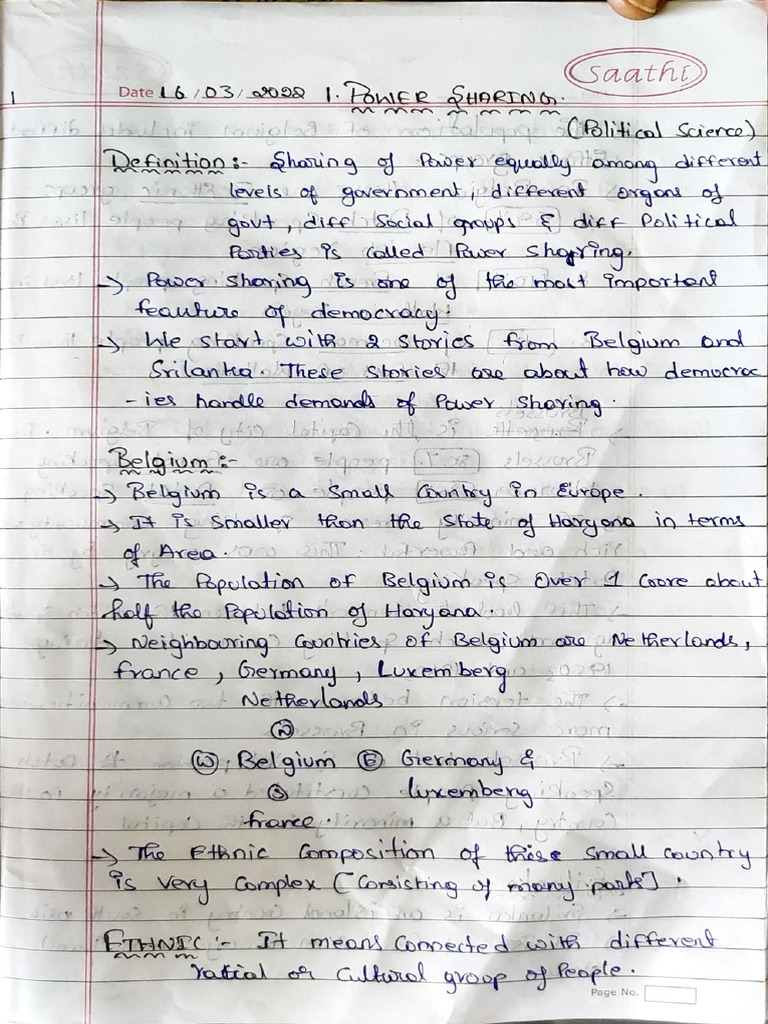 saathi
1
Date 16/03/2022 1. POWER SHARING.
(Political Science)
Definition:- Sharing of Power equally among different
levels of government, different organs of
govt, diff Social groups & diff Political
Parties is called Power Sharing.
→ Power sharing is one of the most important
feauture of democracy.
→ We start with 2 stories from Belgium and
Srilanka. These stories are about how democrac
-ies handle demands of Power Sharing.
Belgium:-
→ Belgium is a Small Country in Europe.
→ It is smaller than the State of Haryana in terms
of Area.
→ The Population of Belgium is Over 1 Crore about
half the Population of Haryana.
→ Neighbouring Countries of Belgium are Netherlands,
france, Germany, Luxemberg
Netherlands
N
W Belgium E Germany &
S luxemberg
france.
→ The Ethnic Composition of this small country
is very Complex [Consisting of many parts].
ETHNIC:- It means Connected with different
ratial or Cultural group of People.
Page No.